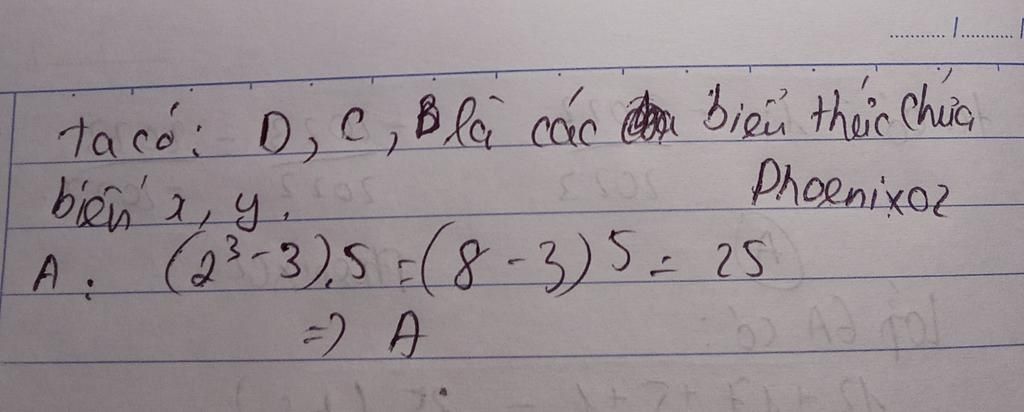 ta có: D, C, B là các biểu thức chứa
biến x, y.
Phoenixoz
A: (2³-3).5=(8-3)5= 25
=> A